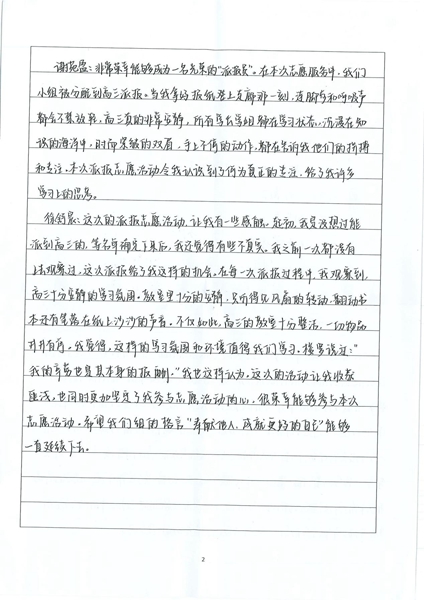 谢苑霖：非常荣幸能够成为一名光荣的“派报员”。在本次志愿服务中，我们
小组被分配到高三派报。当我拿好报纸登上走廊那一刻，连脚步和呼吸声
都会不禁放轻，高三真的非常安静，所有学长学姐都在学习状态，沉浸在知
识的海洋中，时而紧皱的双眉，手上不停的动作，都在告诉我他们的拼搏
和专注。本次派报志愿活动令我认识到了何为真正的专注，给了我许多
学习上的思考。
徐钧泉：这次的派报志愿活动，让我有一些感触。起初，我是没想过能
派到高三的，等名单确定下来后，我还觉得有些不真实。我之前一次都没有
上来观察过，这次派报给了我这样的机会。在每一次派报过程中，我观察到
高三十分安静的学习氛围。教室里十分的安静，只听得见风扇的转动，翻动书
本还有笔落在纸上沙沙的声音。不仅如此，高三的教室十分整洁，一切物品
井井有条。我觉得，这样的学习氛围和环境值得我们学习。楼里说过：“
我的幸苦也是其本身的报酬。”我也这样认为。这次的活动让我收获
匪浅，也同时更加坚定了我参与志愿活动的心。很荣幸能够参与本次
志愿活动。希望我们组的格言“奉献他人，成就更好的自己”能够
一直延续下去。
2